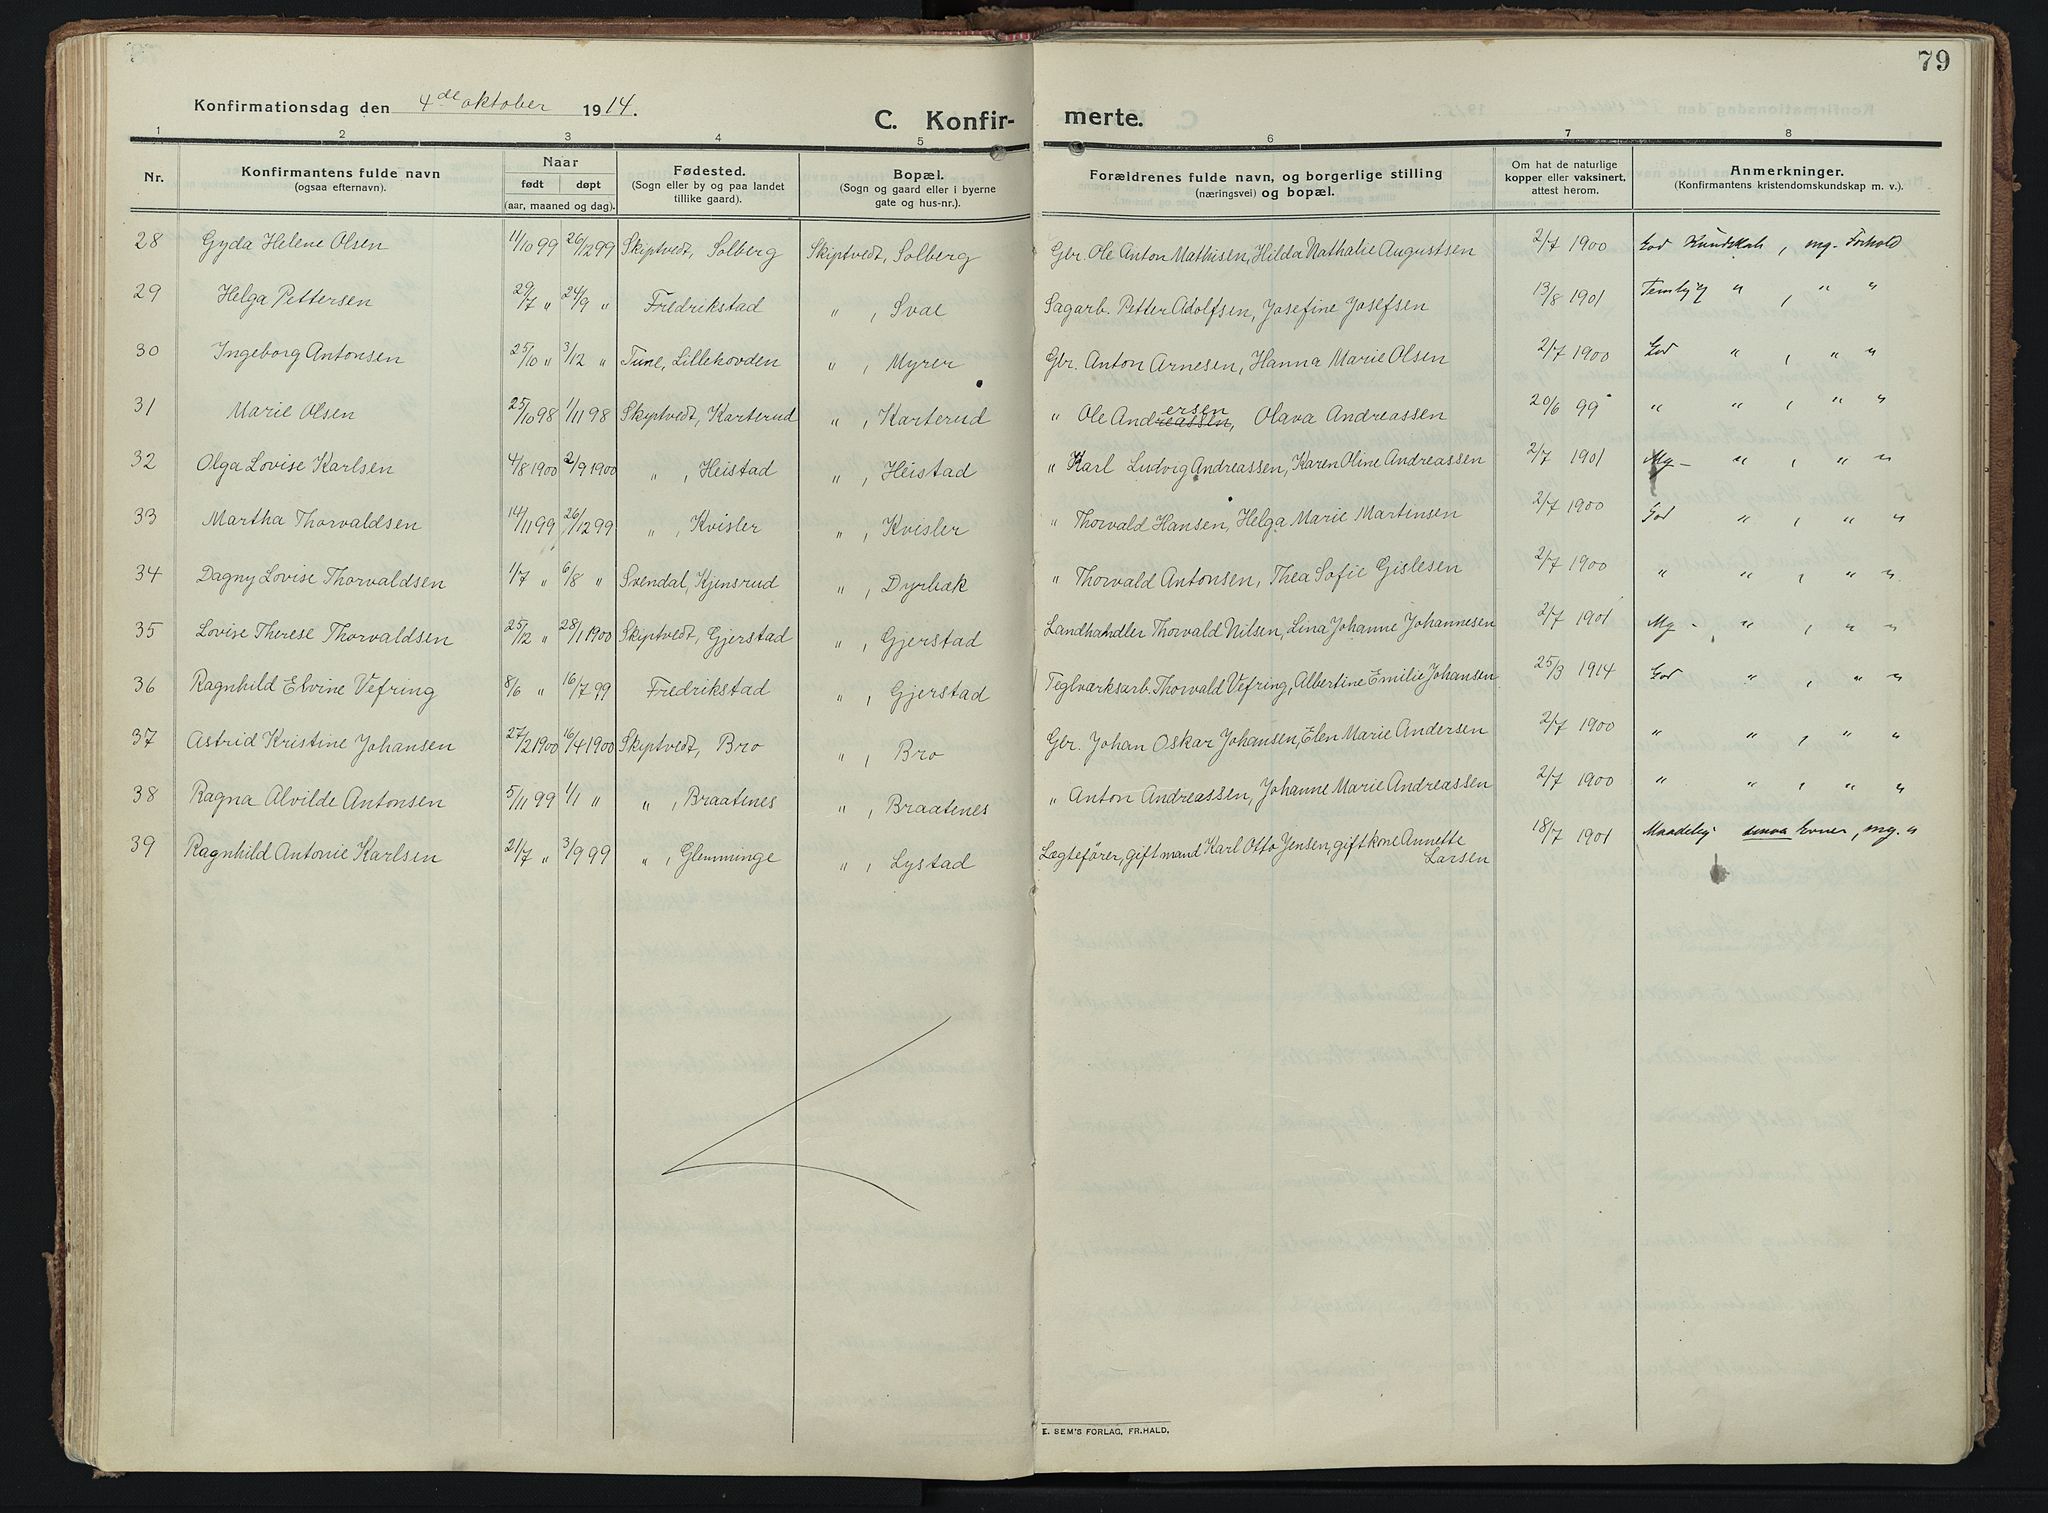 79
Konfirmationsdag den 4de oktober 1914.
C. Konfirmerte.
1 2 3 4 5 6 7 8
Nr. Konfirmantens fulde navn (ogsaa efternavn). Naar født døpt (aar, maaned og dag). Fødested. (Sogn eller by og paa landet tillike gaard). Bopæl. (Sogn og gaard eller i byerne gate og hus-nr.). Forældrenes fulde navn, og borgerlige stilling (næringsvei) og bopæl. Om hat de naturlige kopper eller vaksinert, attest herom. Anmerkninger. (Konfirmantens kristendomskundskap m. v.).
28 Gyda Helene Olsen 11/10 99 26/12 99 Skiptvedt, Solberg Skiptvedt, Solberg Gbr. Ole Anton Mathisen, Hilda Nathalie Augustsen 2/7 1900 God Kundskab, mg. Forhold
29 Helga Pettersen 29/7 " 24/9 " Fredrikstad " , Svae Sagarb. Petter Adolfsen, Josefine Josefsen 13/8 1901 Temlig " , " "
30 Ingeborg Antonsen 25/10 " 3/12 " Tune, Lillehovden " , Myrer Gbr. Anton Arnesen, Hanna Marie Olsen 2/7 1900 God " , " "
31 Marie Olsen 25/10 98 1/11 98 Skiptvedt, Karterud " , Karterud " Ole Andreassen ersen, Olava Andreassen 20/6 99 " " , " "
32 Olga Lovise Karlsen 4/8 1900 2/9 1900 " , Heistad " , Heistad " Karl Ludvig Andreassen, Karen Oline Andreassen 2/7 1901 Mg - " , " "
33 Martha Thorvaldsen 14/11 99 26/12 99 " , Kvisler " , Kvisler " Thorvald Hansen, Helga Marie Martensen 2/7 1900 God " , " "
34 Dagny Lovise Thorvaldsen 1/7 " 6/8 " Svendal, Kjensrud " , Dyrbæk " Thorvald Antonsen, Thea Sofie Gislesen 2/7 1900 " " , " "
35 Lovise Therese Thorvaldsen 25/12 " 28/1 1900 Skiptvedt, Gjerstad " , Gjerstad Landhandler Thorvald Nilsen, Lina Johanne Johannesen 2/7 1901 Mg - " , " "
36 Ragnhild Elvine Vefring 8/6 " 16/7 99 Fredrikstad " , Gjerstad Teglværksarb. Thorvald Vefring, Albertine Emilie Johansen 25/3 1914 God " , " "
37 Astrid Kristine Johansen 27/2 1900 16/4 1900 Skiptvedt, Bro " , Bro Gbr. Johan Oskar Johansen, Elen Marie Andersen 2/7 1900 " " , " "
38 Ragna Alvilde Antonsen 5/11 99 1/1 " " , Braatenes " , Braatenes " Anton Andreassen, Johanne Marie Andreassen 2/7 1900 " " , " "
39 Ragnhild Antonie Karlsen 21/7 " 3/9 99 " , Glemminge " , Lystad Lægtefører, gift mand Karl Otto Jensen, gift kone Annette Larsen 18/7 1901 Maadelig - smaa Evner, mg. "
E. SEM'S FORLAG, FR.HALD.